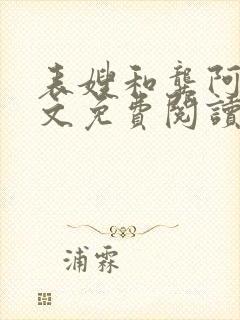 表嫂和龔阿
文免費閱讀
浦霖